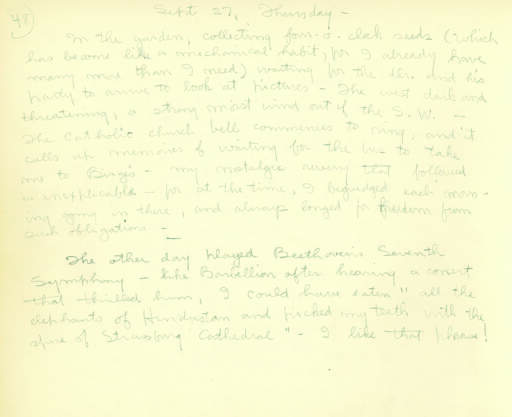 48
Sept 27, Thursday -
In the garden, collecting four-o-clock seeds (which
has become like a mechanical habit, for I already have
many more than I need) waiting for the Drs. and his
party to arrive to look at pictures - The west dark and
threatening, a strong moist wind out of the S.W. -
The Catholic church bell commences to ring, and it
calls up memories of waiting for the bus to take
me to Birge's - my nostalgic reverie that followed
is inexplicable - for at the time, I begrudged each morn-
ing going in there, and always longed for freedom from
such obligations -
The other day played Beethoven's Seventh
Symphony - like Barbellion after hearing a concert
that thrilled him, I could have eaten "all the
elephants of Hindustan and picked my teeth with the
spire of Strassburg Cathedral" - I like that phrase!